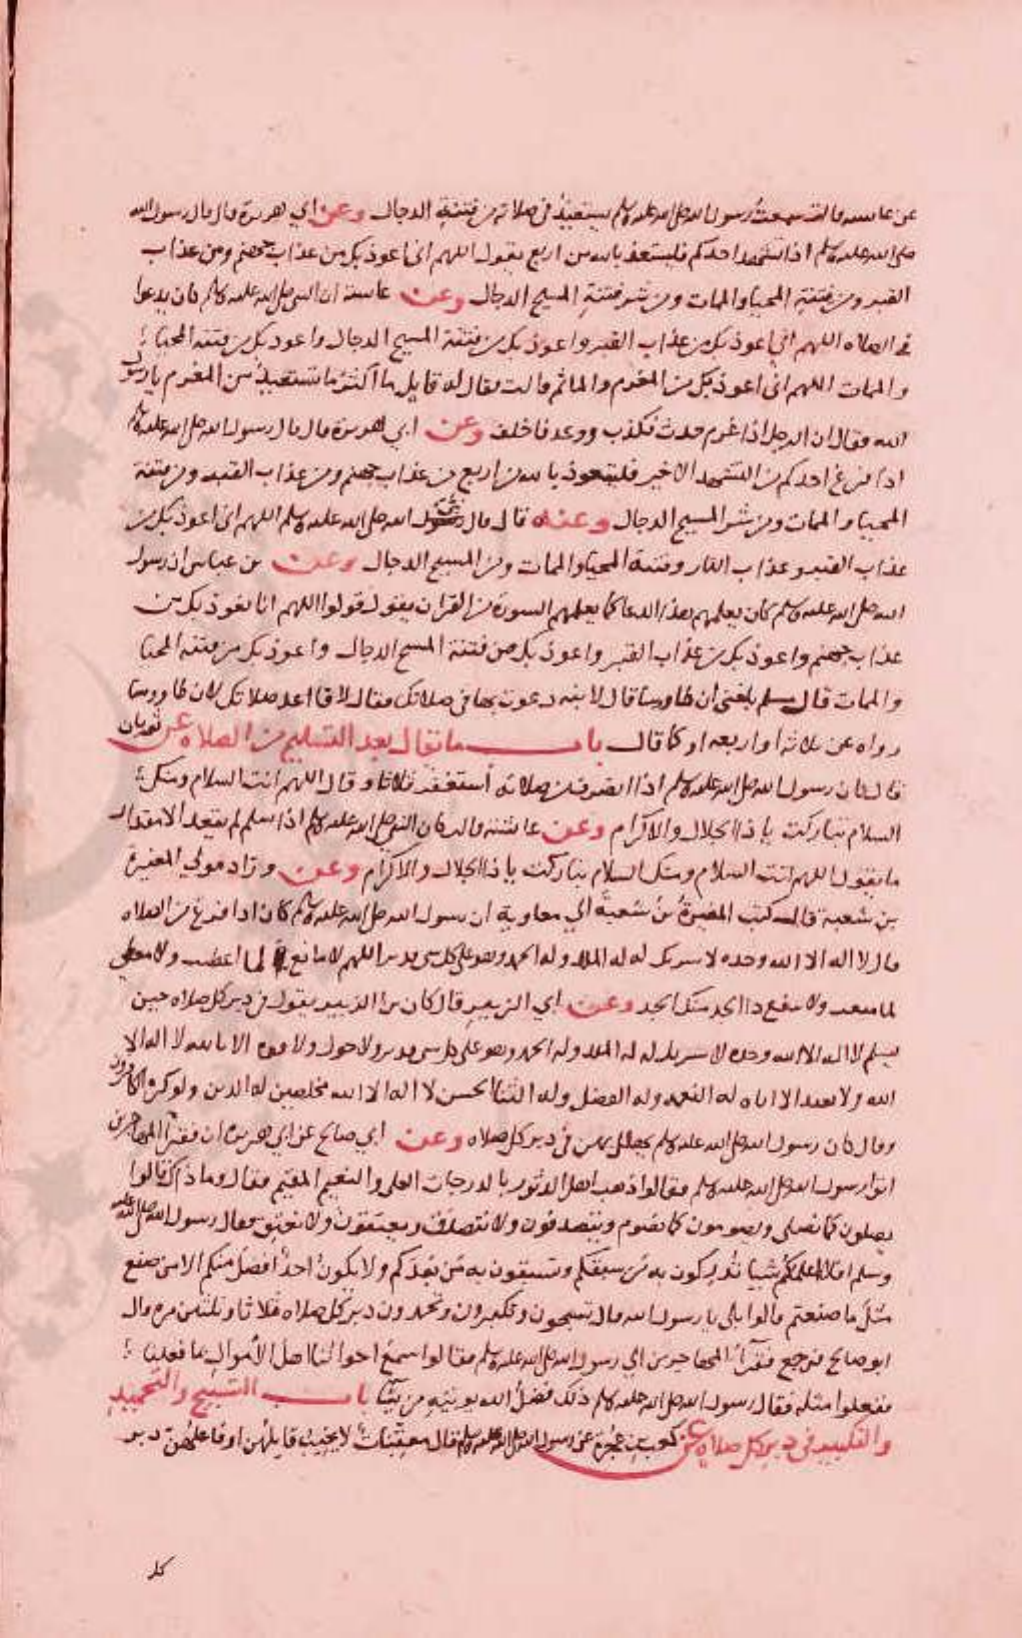 عن عاىسه قالت سمعت رسول الله صلى الله عليه وسلم يستعيذ فى صلاته من فتنة الدجال وعن ابي هريرة قال قال رسول الله
صلى الله عليه وسلم اذا تشهد احدكم فليستعذ بالله من اربع يقول اللهم انى اعوذ بك من عذاب جهنم ومن عذاب
القبر ومن فتنة المحيا والممات ومن شر فتنة المسيح الدجال وعن عاىسة ان النبى صلى الله عليه وسلم كان يدعوا
فى الصلاه اللهم انى اعوذ بك من عذاب القبر واعوذ بك من فتنة المسيح الدجال واعوذ بك من فتنة المحيا
والممات اللهم انى اعوذ بك من المغرم والماثم قالت فقال له قايل ما اكثر ما تستعيذ من المغرم يا رسول
الله فقال ان الرجل اذا غرم حدث فكذب ووعد فاخلف وعن ابي هريرة قال قال رسول الله صلى الله عليه وسلم
اذا فرغ احدكم من التشهد الاخير فليتعوذ بالله من اربع من عذاب جهنم ومن عذاب القبر ومن فتنة
المحيا والممات ومن شر المسيح الدجال وعنه قال قال رسول الله صلى الله عليه وسلم اللهم انى اعوذ بك من
عذاب القبر وعذاب النار وفتنة المحيا والممات ومن المسيح الدجال وعن بن عباس ان رسول
الله صلى الله عليه وسلم كان يعلمهم هذا الدعا كما يعلمهم السورة من القران يقول قولوا اللهم انا نعوذ بك من
عذاب جهنم واعوذ بك من عذاب القبر واعوذ بك من فتنة المسيح الدجال واعوذ بك من فتنة المحيا
والممات قال مسلم بلغنى ان طاوسا قال لابنه دعوت بها فى صلاتك فقال لا قال اعد صلاتك لان طاووسا
رواه عن ثلاثه او اربعه او كما قال باب ما يقال بعد التسليم من الصلاه عن ثوبان
قال كان رسول الله صلى الله عليه وسلم اذا انصرف من صلاته أستغفر ثلاثا وقال اللهم انت السلام ومنك
السلام تباركت يا ذا الجلال والاكرام وعن عائشه قالت كان النبى صلى الله عليه وسلم اذا سلم لم يقعد الا مقدار
ما يقول اللهم انت السلام ومنك السلام تباركت يا ذا الجلال والاكرام وعن وراد مولى المغيرة
بن شعبة قال كتب المغيرة بن شعبة الي معاوية ان رسول الله صلى الله عليه وسلم كان اذا فرغ من الصلاه
قال لا اله الا الله وحده لا شريك له له الملك وله الحمد وهو على كل شى قدير اللهم لا مانع لما اعطيت ولا معطى
لما منعت ولا ينفع ذا الجد منك الجد وعن ابي الزبير قال كان بن الزبير يقول فى دبر كل صلاه حين
يسلم لا اله الا الله وحده لا شريك له له الملك وله الحمد وهو على كل شى قدير ولا حول ولا قوه الا بالله لا اله الا
الله ولا نعبد الا اياه له النعمه وله الفضل وله الثنا الحسن لا اله الا الله مخلصين له الدين ولو كره الكافرون
وقال كان رسول الله صلى الله عليه وسلم يهلل بهن فى دبر كل صلاه وعن ابي صالح عن ابي هريره ان فقرآ المهاجرين
اتوا رسول الله صلى الله عليه وسلم فقالوا ذهب اهل الدثور بالدرجات العلى والنعيم المقيم فقال وما ذاك قالوا
يصلون كما نصلى ويصومون كما نصوم ويتصدقون ولا نتصدق ويعتقون ولا نعتق فقال رسول الله صلى الله عليه
وسلم افلا اعلمكم شيا تدركون به من سبقكم وتسبقون به من بعدكم ولا يكون احد افضل منكم الا من صنع
مثل ما صنعتم قالوا بلى يا رسول الله قال تسبحون وتكبرون وتحمدون دبر كل صلاه ثلاثا وثلثين مره قال
ابو صالح فرجع فقرآ المهاجرين الي رسول الله صلى الله عليه وسلم فقالوا سمع اخواننا اهل الأموال بما فعلنا
ففعلوا مثله فقال رسول الله صلى الله عليه وسلم ذلك فضل الله يوتيه من يشا باب التسبيح والتحميد
والتكبير فى دبر كل صلاه عن كعب بن عجرة عن رسول الله صلى الله عليه وسلم قال معقبات لا يخيب قايلهن او فاعلهن دبر
كل